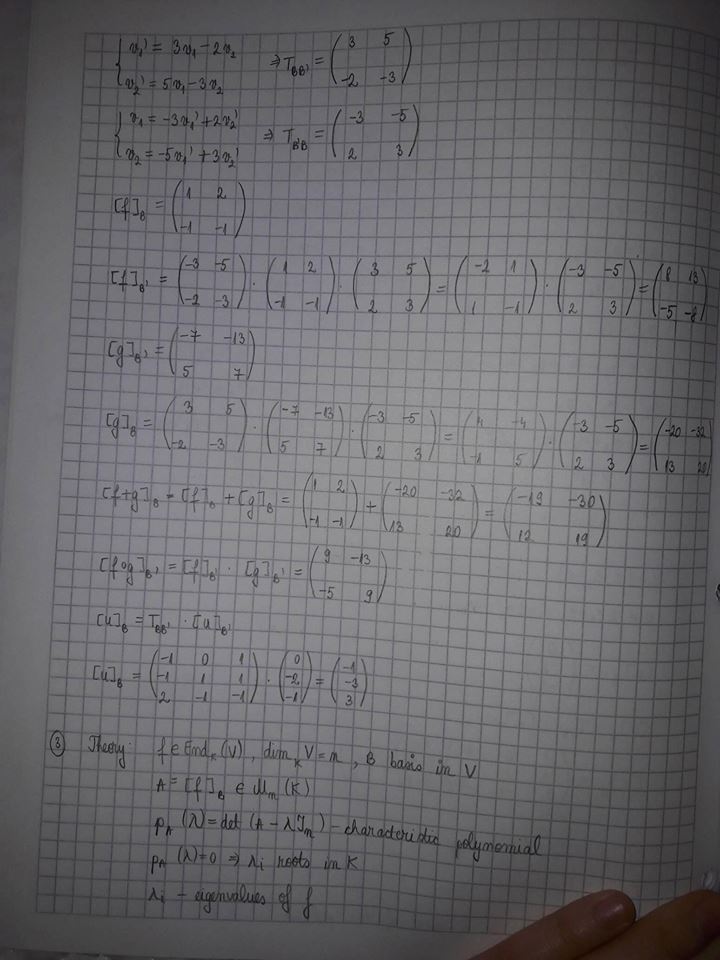 { v₁' = 3v₁ - 2v₂ ⇒ T_BB' = ( 3 5
v₂' = 5v₁ - 3v₂ -2 -3 )
{ v₁ = -3v₁' + 2v₂' ⇒ T_B'B = ( -3 -5
v₂ = -5v₁' + 3v₂' 2 3 )
[f]_B = ( 1 2
-1 -1 )
[f]_B' = ( -3 -5 ; -2 -3 ) · ( 1 2 ; -1 -1 ) · ( 3 5 ; 2 3 ) = ( -2 1 ; 1 -1 ) · ( -3 -5 ; 2 3 ) = ( 8 13 ; -5 -8 )
[g]_B' = ( -7 -13
5 7 )
[g]_B = ( 3 5 ; -2 -3 ) · ( -7 -13 ; 5 7 ) · ( -3 -5 ; 2 3 ) = ( 4 -4 ; -1 5 ) · ( -3 -5 ; 2 3 ) = ( -20 -32 ; 13 20 )
[f+g]_B = [f]_B + [g]_B = ( 1 2 ; -1 -1 ) + ( -20 -32 ; 13 20 ) = ( -19 -30 ; 12 19 )
[f∘g]_B' = [f]_B' · [g]_B' = ( 9 -13 ; -5 9 )
[u]_B = T_BB' · [u]_B'
[u]_B = ( -1 0 1 ; -1 1 1 ; 2 -1 -1 ) · ( 0 ; -2 ; -1 ) = ( -1 ; -3 ; 3 )
③ Theory: f ∈ End_K(V), dim_K V = n, B basis in V
A = [f]_B ∈ M_n(K)
p_A(λ) = det(A - λI_n) - characteristic polynomial
p_A(λ) = 0 ⇒ λi roots in K
λi - eigenvalues of f